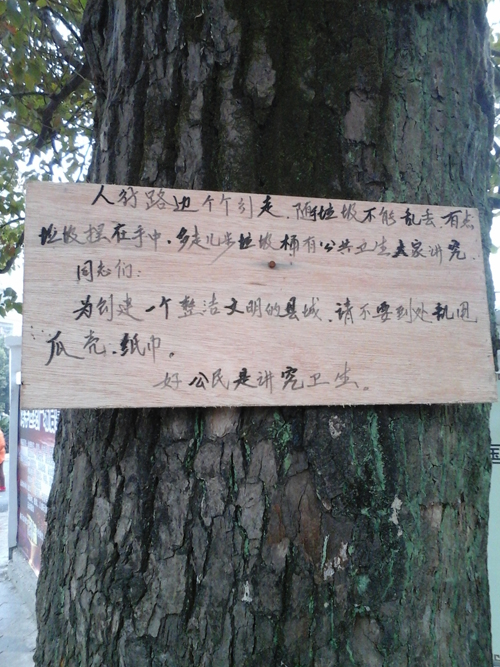 人行路边个个引走，随垃圾不能乱丢，有点
垃圾捏在手中，多走几步垃圾桶有，公共卫生大家讲究。
同志们：
为创建一个整洁文明的县城，请不要到处乱甩
瓜壳、纸巾。
好公民是讲究卫生。
国